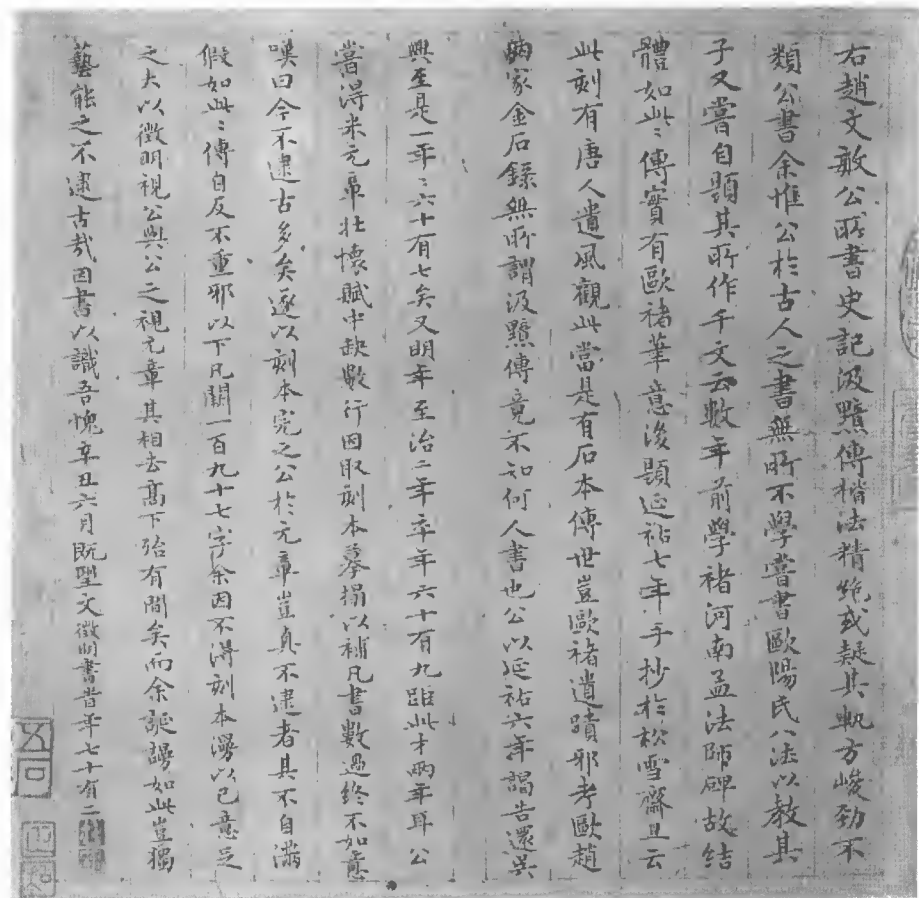 右趙文敏公所書史記汲黯傳楷法精絕或疑其軌方峻勁不
類公書余惟公於古人之書無所不學嘗書歐陽氏八法以教其
子又嘗自題其所作千文云數年前學褚河南孟法師碑故結
體如此此傳實有歐褚筆意後題延祐七年手抄於松雪齋且云
此刻有唐人遺風觀此當是有石本傳世豈歐褚遺蹟邪考歐趙
兩家金石錄無所謂汲黯傳竟不知何人書也公以延祐六年謁告還吳
興至是一年年六十有七矣又明年至治二年卒年六十有九距此才兩年耳公
嘗得米元章壯懷賦中缺數行因取刻本摹搨以補凡書數過終不如意
嘆曰今不逮古多矣遂以刻本完之公於元章豈真不逮者其不自滿
假如此此傳自反不重邪以下凡闕一百九十七字余因不得刻本漫以己意足
之夫以徵明視公與公之視元章其相去高下殆有間矣而余誕謾如此豈獨
藝能之不逮古哉因書以識吾愧辛丑六月既望文徵明書昔年七十有二